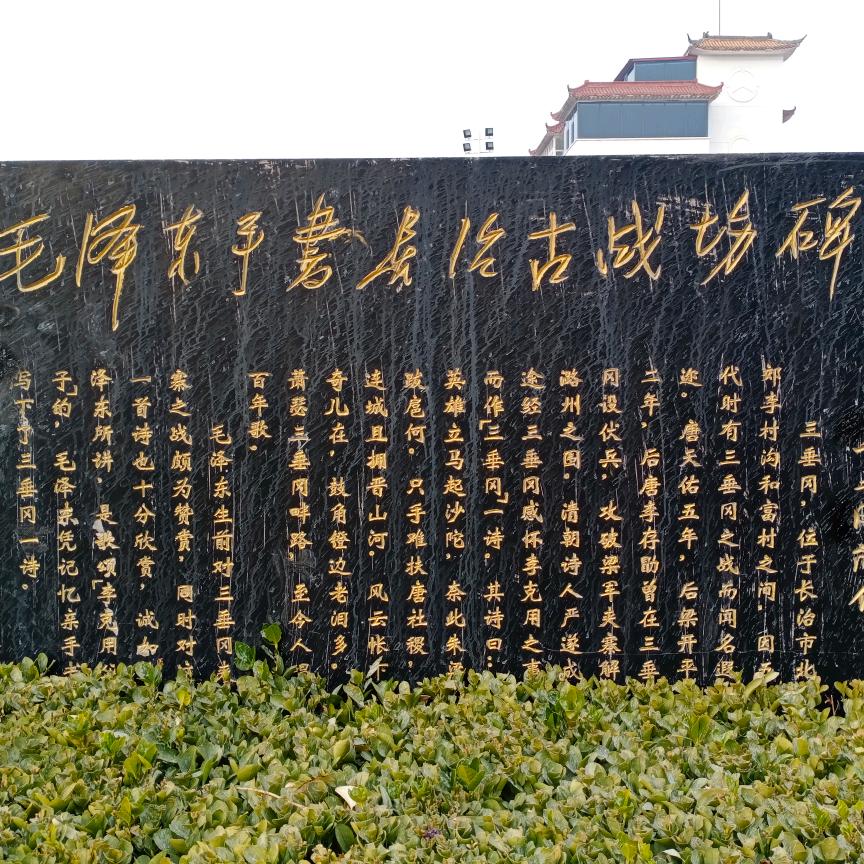 毛泽东手书长治古战场碑
三垂冈，位于长治市北
郊李村沟和富村之间，因五
代时有三垂冈之战而闻名遐
迩。唐天佑五年，后梁开平
二年，后唐李存勖曾在三垂
冈设伏兵，攻破梁军夹寨解
潞州之围。清朝诗人严遂成
途经三垂冈感怀李克用之事
而作「三垂冈」一诗。其诗曰：
英雄立马起沙陀，奈此朱温
跋扈何。只手难扶唐社稷，
连城且拥晋山河。风云帐下
奇儿在，鼓角镫边老泪多。
萧瑟三垂冈畔路，至今人唱
百年歌。
毛泽东生前对三垂冈夹
寨之战颇为赞赏，同时对
一首诗也十分欣赏，诚如
泽东所讲，是歌颂「李克用
子的，毛泽东凭记忆亲手
写下了三垂冈一诗。